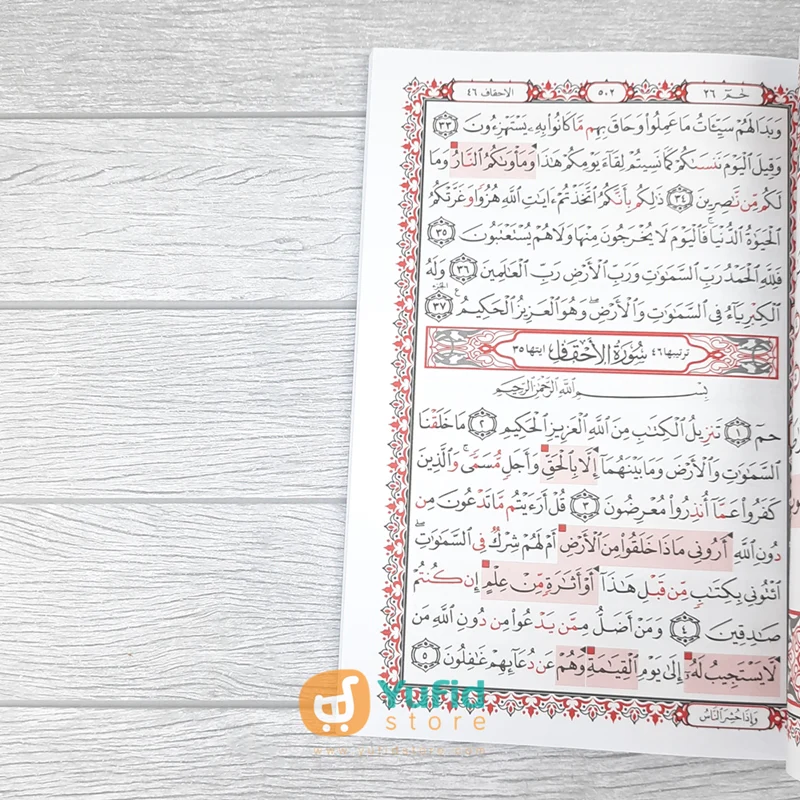 حم ٢٦
٥٠٢
الاحقاف ٤٦
وَبَدَا لَهُمْ سَيِّـَٔاتُ مَا عَمِلُوا۟ وَحَاقَ بِهِم مَّا كَانُوا۟ بِهِۦ يَسْتَهْزِءُونَ ٣٣
وَقِيلَ ٱلْيَوْمَ نَنسَىٰكُمْ كَمَا نَسِيتُمْ لِقَآءَ يَوْمِكُمْ هَٰذَا وَمَأْوَىٰكُمُ ٱلنَّارُ وَمَا
لَكُم مِّن نَّٰصِرِينَ ٣٤ ذَٰلِكُم بِأَنَّكُمُ ٱتَّخَذْتُمْ ءَايَٰتِ ٱللَّهِ هُزُوًا وَغَرَّتْكُمُ
ٱلْحَيَوٰةُ ٱلدُّنْيَا ۚ فَٱلْيَوْمَ لَا يُخْرَجُونَ مِنْهَا وَلَا هُمْ يُسْتَعْتَبُونَ ٣٥
فَلِلَّهِ ٱلْحَمْدُ رَبِّ ٱلسَّمَٰوَٰتِ وَرَبِّ ٱلْأَرْضِ رَبِّ ٱلْعَٰلَمِينَ ٣٦ وَلَهُ
ٱلْكِبْرِيَآءُ فِى ٱلسَّمَٰوَٰتِ وَٱلْأَرْضِ ۖ وَهُوَ ٱلْعَزِيزُ ٱلْحَكِيمُ ٣٧
ترتيبها ٤٦ سُورَةُ الأَحْقَافِ ايتها ٣٥
بِسْمِ ٱللَّهِ ٱلرَّحْمَٰنِ ٱلرَّحِيمِ
حمٓ ١ تَنزِيلُ ٱلْكِتَٰبِ مِنَ ٱللَّهِ ٱلْعَزِيزِ ٱلْحَكِيمِ ٢ مَا خَلَقْنَا
ٱلسَّمَٰوَٰتِ وَٱلْأَرْضَ وَمَا بَيْنَهُمَآ إِلَّا بِٱلْحَقِّ وَأَجَلٍ مُّسَمًّى ۚ وَٱلَّذِينَ
كَفَرُوا۟ عَمَّآ أُنذِرُوا۟ مُعْرِضُونَ ٣ قُلْ أَرَءَيْتُم مَّا تَدْعُونَ مِن
دُونِ ٱللَّهِ أَرُونِى مَاذَا خَلَقُوا۟ مِنَ ٱلْأَرْضِ أَمْ لَهُمْ شِرْكٌ فِى ٱلسَّمَٰوَٰتِ ۖ
ٱئْتُونِى بِكِتَٰبٍ مِّن قَبْلِ هَٰذَآ أَوْ أَثَٰرَةٍ مِّنْ عِلْمٍ إِن كُنتُمْ
صَٰدِقِينَ ٤ وَمَنْ أَضَلُّ مِمَّن يَدْعُوا۟ مِن دُونِ ٱللَّهِ مَن
لَّا يَسْتَجِيبُ لَهُۥٓ إِلَىٰ يَوْمِ ٱلْقِيَٰمَةِ وَهُمْ عَن دُعَآئِهِمْ غَٰفِلُونَ ٥
وَإِذَا حُشِرَ النَّاسُ
Yufid
store